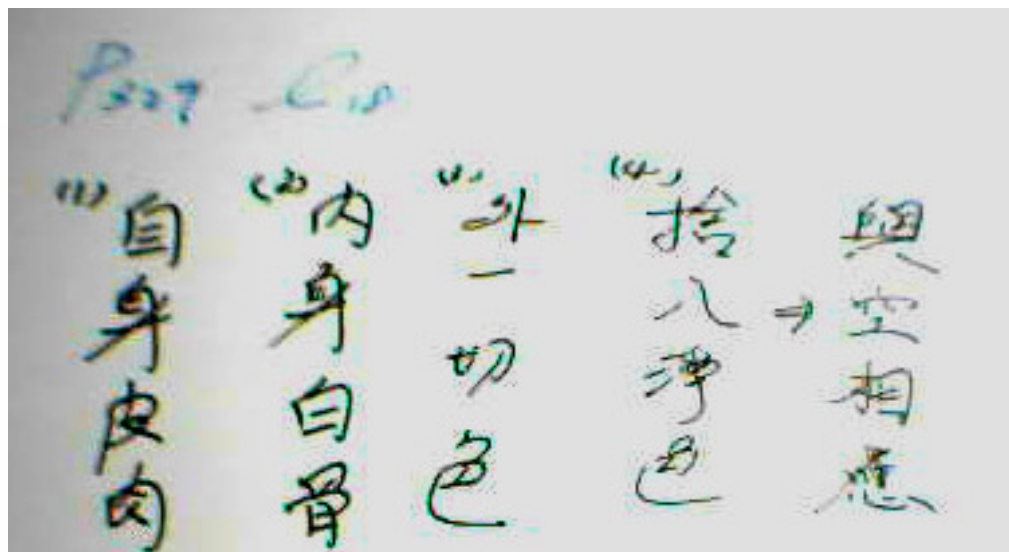 P327 C18
(1) 自身皮肉
(2) 內身白骨
(3) 外一切色
(4) 捨八淨色 ⇒
與空相應